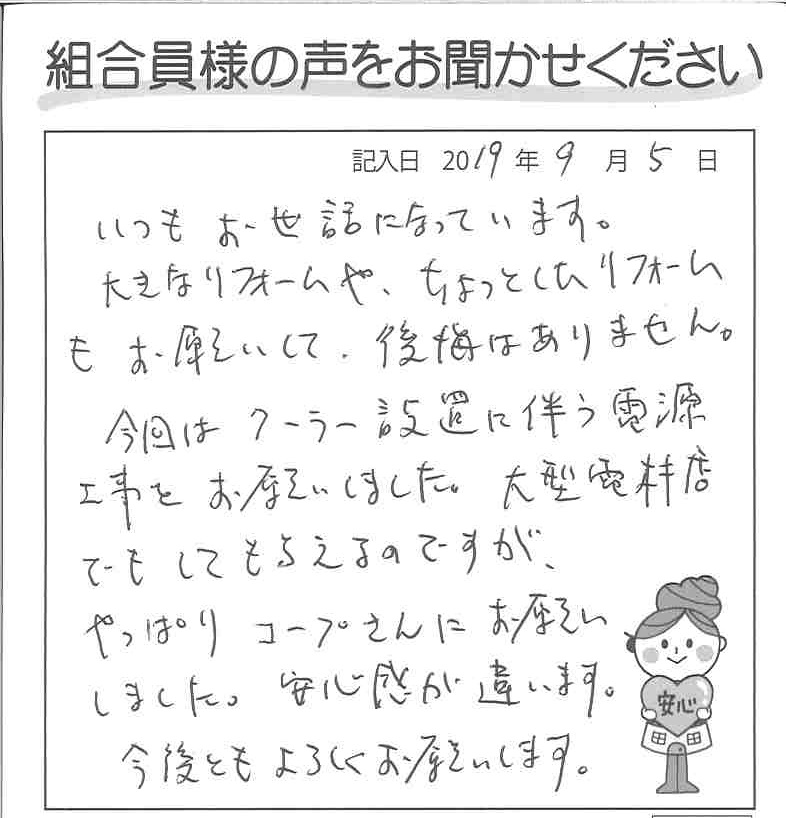 組合員様の声をお聞かせください
記入日 2019年9月5日
いつもお世話になっています。
大きなリフォームや、ちょっとしたリフォーム
もお願いして、後悔はありません。
今回はクーラー設置に伴う電源
工事をお願いしました。大型電材店
でもしてもらえるのですが、
やっぱりコープさんにお願い
しました。安心感が違います。
安心
今後ともよろしくお願いします。